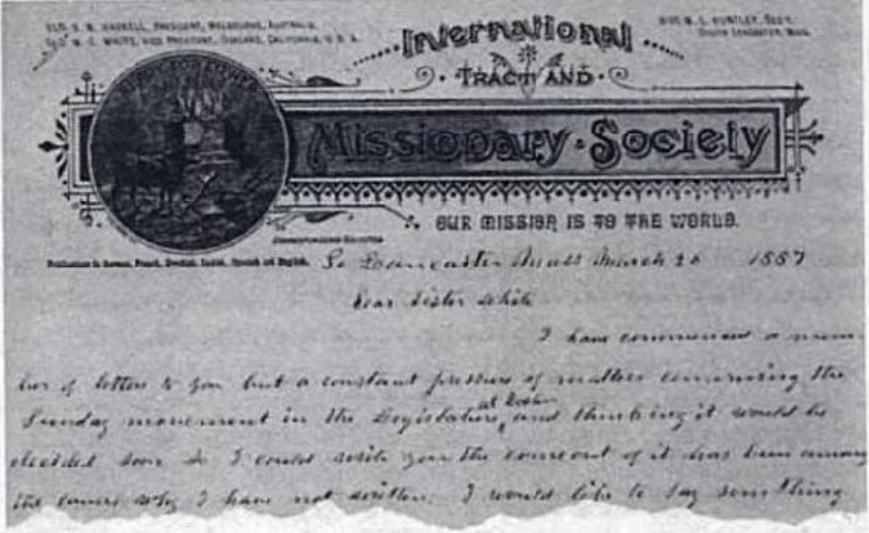 ELD. S. N. HASKELL, PRESIDENT, MELBOURNE, AUSTRALIA.
W. C. WHITE, VICE PRESIDENT, OAKLAND, CALIFORNIA, U. S. A.
M. L. HUNTLEY, SECY.
SOUTH LANCASTER, MASS.
International
TRACT AND
Missionary Society
OUR MISSION IS TO THE WORLD.
Publications in German, French, Danish, Spanish and English.
So Lancaster Mass March 28 1887
Dear Sister White
I have commenced a num
ber of letters to you but a constant pressure of matters concerning the
at Boston
Sunday movement in the Legislature, and thinking it would be
decided soon so I could write you the comeout of it has been among
the causes why I have not written. I would like to say something